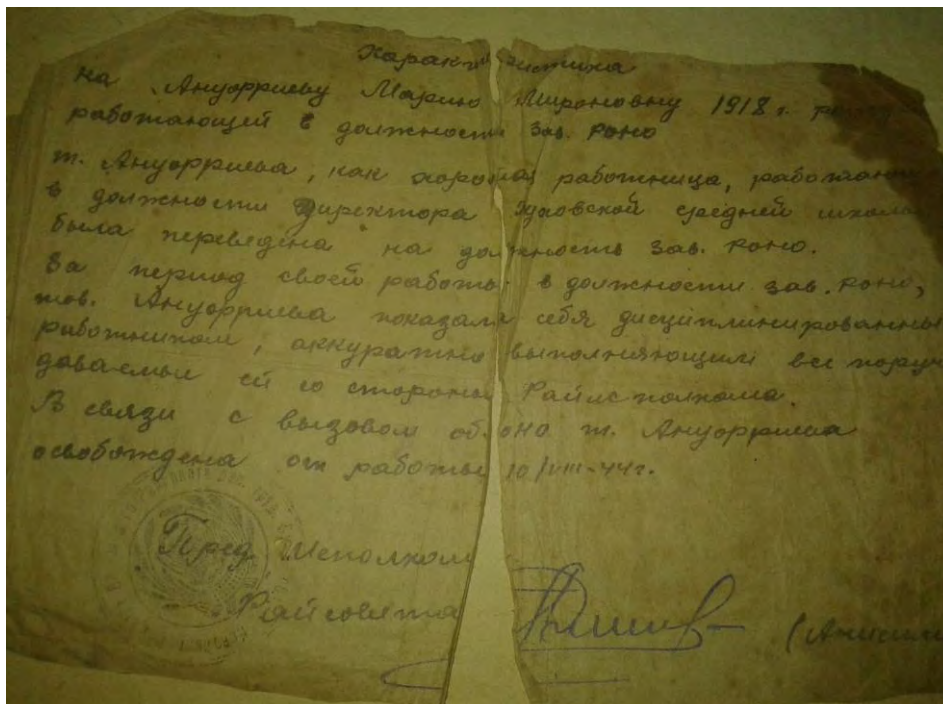 Характеристика
на Ануфриеву Марию Мироновну 1918 г.
работающей в должности Зав. РОНО
т. Ануфриева, как хорошая работница,
в должности Директора средней
была переведена на должность Зав. РОНО.
За период своей работы в должности зав. РОНО,
тов. Ануфриева показала себя
работником, аккуратно выполняющим все
даваемые ей со стороны Райисполкома.
В связи с вызовом облоно т. Ануфриева
освобождена от работы 10/VIII-44г.
Пред. Исполком
Райсовета